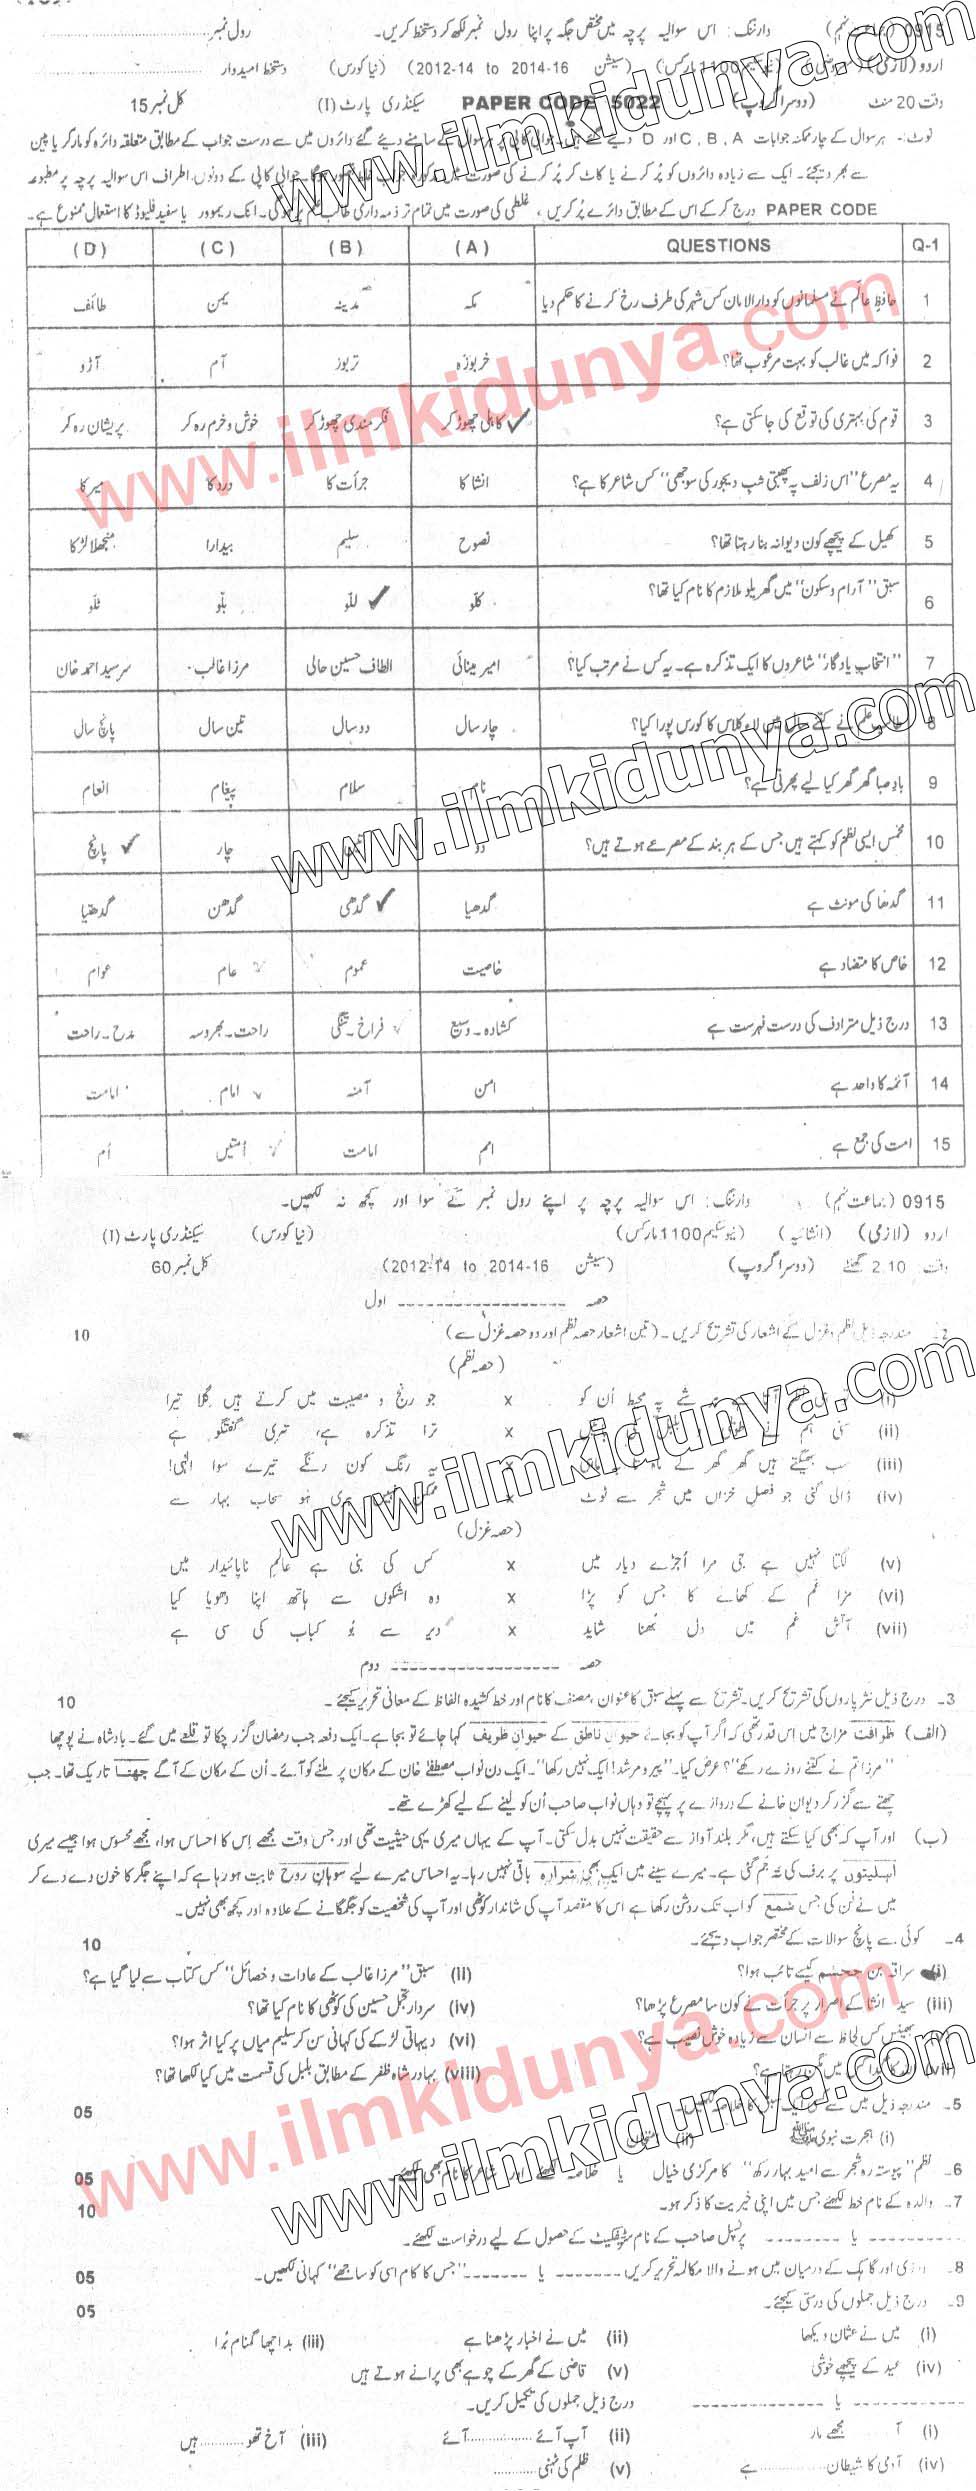 0915 (جماعت نہم) وارننگ: اس سوالیہ پرچہ میں مختص جگہ پر اپنا رول نمبر لکھ کر دستخط کریں۔ رول نمبر
اردو (لازمی) (نیو سکیم 1100 مارکس) (سیشن 2012-14 to 2014-16) (نیا کورس) دستخط امیدوار
وقت 20 منٹ (دوسرا گروپ) PAPER CODE 5022 سیکنڈری پارٹ (I) کل نمبر 15
نوٹ:- ہر سوال کے چار ممکنہ جوابات A ، B ، C اور D دیے گئے ہیں۔ جوابی کاپی پر ہر سوال کے سامنے دیئے گئے دائروں میں سے درست جواب کے مطابق متعلقہ دائرہ کو مارکر یا پین
سے بھر دیجئے۔ ایک سے زیادہ دائروں کو پُر کرنے یا کاٹ کر پُر کرنے کی صورت میں جوابی کاپی کے دونوں اطراف اس سوالیہ پرچہ پر مطبوعہ
PAPER CODE درج کر کے اس کے مطابق دائرے پُر کریں، غلطی کی صورت میں تمام تر ذمہ داری طالب علم پر ہوگی۔ انک ریموور یا سفید فلیوڈ کا استعمال ممنوع ہے۔
Q-1 QUESTIONS (A) (B) (C) (D)
1 حافظِ عالم نے مسلمانوں کو دارالامان کس شہر کی طرف رخ کرنے کا حکم دیا مکہ مدینہ یمن طائف
2 فواکہ میں غالب کو بہت مرغوب تھا؟ خربوزہ تربوز آم آڑو
3 قوم کی بہتری کی توقع کی جا سکتی ہے؟ کاہلی چھوڑ کر فکر مندی چھوڑ کر خوش و خرم رہ کر پریشان رہ کر
4 یہ مصرع "اس زلف پہ پھبتی شبِ دیجور کی سوجھی" کس شاعر کا ہے؟ انشا کا جرأت کا درد کا میر کا
5 کھیل کے پیچھے کون دیوانہ بنا رہتا تھا؟ نصوح سلیم بیدارا منجھلا لڑکا
6 سبق "آرام و سکون" میں گھریلو ملازم کا نام کیا تھا؟ کلّو للّو بلّو ٹلّو
7 "انتخابِ یادگار" شاعروں کا ایک تذکرہ ہے۔ یہ کس نے مرتب کیا؟ امیر مینائی الطاف حسین حالی مرزا غالب سرسید احمد خان
8 نے کتنے سال میں لاء کلاس کا کورس پورا کیا؟ چار سال دو سال تین سال پانچ سال
9 بادِ صبا گھر گھر کیا لیے پھرتی ہے؟ سلام پیغام انعام
10 مخمس ایسی نظم کو کہتے ہیں جس کے ہر بند کے مصرعے ہوتے ہیں؟ دو چار پانچ
11 گدھا کی مونث ہے گدھیا گدھی گدھن گدھتیا
12 خاص کا متضاد ہے خاصیت عموم عام عوام
13 درج ذیل مترادف کی درست فہرست ہے کشادہ۔وسیع فراخ۔تنگی راحت۔بھروسہ مدح۔راحت
14 آئمہ کا واحد ہے امن آمنہ امام امامت
15 امت کی جمع ہے امم امامت اُمتیں اُم
0915 (جماعت نہم) وارننگ: اس سوالیہ پرچہ پر اپنے رول نمبر کے سوا اور کچھ نہ لکھیں۔
اردو (لازمی) (انشائیہ) (نیو سکیم 1100 مارکس) (نیا کورس) سیکنڈری پارٹ (I)
وقت 2.10 گھنٹے (دوسرا گروپ) (سیشن 2012-14 to 2014-16) کل نمبر 60
حصہ اول
2- مندرجہ ذیل نظم و غزل کے اشعار کی تشریح کریں۔ (تین اشعار حصہ نظم اور دو حصہ غزل سے) 10
(حصہ نظم)
(i) شے پہ محیط اُن کو x جو رنج و مصیبت میں کرتے ہیں گلا تیرا
(ii) سنی ہم نے x ترا تذکرہ ہے، تری گفتگو ہے
(iii) سب بھیگتے ہیں گھر گھر لے ماہ x یہ رنگ کون رنگے تیرے سوا الٰہی!
(iv) ڈالی گئی جو فصلِ خزاں میں شجر سے ٹوٹ x ممکن نہیں ہری ہو سحابِ بہار سے
(حصہ غزل)
(v) لگتا نہیں ہے جی مرا اُجڑے دیار میں x کس کی بنی ہے عالمِ ناپائیدار میں
(vi) مزا غم کے کھانے کا جس کو پڑا x وہ اشکوں سے ہاتھ اپنا دھویا کیا
(vii) آتشِ غم میں دل بھنا شاید x دیر سے بُو کباب کی سی ہے
حصہ دوم
3- درج ذیل نثر پاروں کی تشریح کریں۔ تشریح سے پہلے سبق کا عنوان، مصنف کا نام اور خط کشیدہ الفاظ کے معانی تحریر کیجئے۔ 10
(الف) ظرافت مزاج میں اس قدر تھی کہ اگر آپ کو بجائے حیوانِ ناطق کے حیوانِ ظریف کہا جائے تو بجا ہے۔ ایک دفعہ جب رمضان گزر چکا تو قلعے میں گئے۔ بادشاہ نے پوچھا
"مرزا تم نے کتنے روزے رکھے"؟ عرض کیا۔ "پیر و مرشد! ایک نہیں رکھا"۔ ایک دن نواب مصطفےٰ خان کے مکان پر ملنے کو آئے۔ اُن کے مکان کے آگے چھتا تاریک تھا۔ جب
چھتے سے گزر کر دیوان خانے کے دروازے پر پہنچے تو وہاں نواب صاحب اُن کو لینے کے لیے کھڑے تھے۔
(ب) اور آپ کہہ بھی کیا سکتے ہیں، مگر بلند آواز سے حقیقت نہیں بدل سکتی۔ آپ کے یہاں میری یہی حیثیت تھی اور جس وقت مجھے اِس کا احساس ہوا، مجھے محسوس ہوا جیسے میری
اہلیتوں پر برف کی تہ جم گئی ہے۔ میرے سینے میں ایک بھی شرارہ باقی نہیں رہا۔ یہ احساس میرے لیے سوہانِ روح ثابت ہو رہا ہے کہ اپنے جگر کا خون دے دے کر
میں نے فن کی جس شمع کو اب تک روشن رکھا ہے اس کا مقصد آپ کی شاندار کوٹھی اور آپ کی شخصیت کو جگمگانے کے علاوہ اور کچھ بھی نہیں۔
4- کوئی سے پانچ سوالات کے مختصر جواب دیجئے۔ 10
(i) سراقہ بن جعشم کیسے تائب ہوا؟ (ii) سبق "مرزا غالب کے عادات و خصائل" کس کتاب سے لیا گیا ہے؟
(iii) سید انشا کے اصرار پر جرأت نے کون سا مصرع پڑھا؟ (iv) سردار تجمل حسین کی کوٹھی کا نام کیا تھا؟
بھینس کس لحاظ سے انسان سے زیادہ خوش نصیب ہے؟ (vi) دیہاتی لڑکے کی کہانی سن کر سلیم میاں پر کیا اثر ہوا؟
(vii) میں مگن رہتا ہے؟ (viii) بہادر شاہ ظفر کے مطابق بلبل کی قسمت میں کیا لکھا تھا؟
5- مندرجہ ذیل میں سے کسی ایک سبق کا خلاصہ لکھیں۔ 05
(i) ہجرت نبوی ﷺ (ii)
6- نظم "پیوستہ رہ شجر سے امیدِ بہار رکھ" کا مرکزی خیال یا خلاصہ لکھئے اور شاعر کا نام بھی لکھئے۔ 05
7- والدہ کے نام خط لکھئے جس میں اپنی خیریت کا ذکر ہو۔ 10
یا پرنسپل صاحب کے نام سرٹیفکیٹ کے حصول کے لیے درخواست لکھئے۔
8- اور گاہک کے درمیان میں ہونے والا مکالمہ تحریر کریں یا "جس کا کام اسی کو ساجھے" کہانی لکھیں۔ 05
9- درج ذیل جملوں کی درستی کیجئے۔ 05
(i) میں نے عثمان دیکھا (ii) میں نے اخبار پڑھنا ہے (iii) بد اچھا گمنام بُرا
(iv) عید کے پیچھے خوشی (v) قاضی کے گھر کے چوہے بھی پرانے ہوتے ہیں
یا درج ذیل جملوں کی تکمیل کریں۔
(i) آ ...... مجھے مار (ii) آپ آئے ........ آئے (iii) آخ تھو ........ ہیں
(iv) آدمی کا شیطان ........ ہے (v) ظلم کی ٹہنی ........
www.ilmkidunya.com
www.ilmkidunya.com
www.ilmkidunya.com
www.ilmkidunya.com
www.ilmkidunya.com
www.ilmkidunya.com